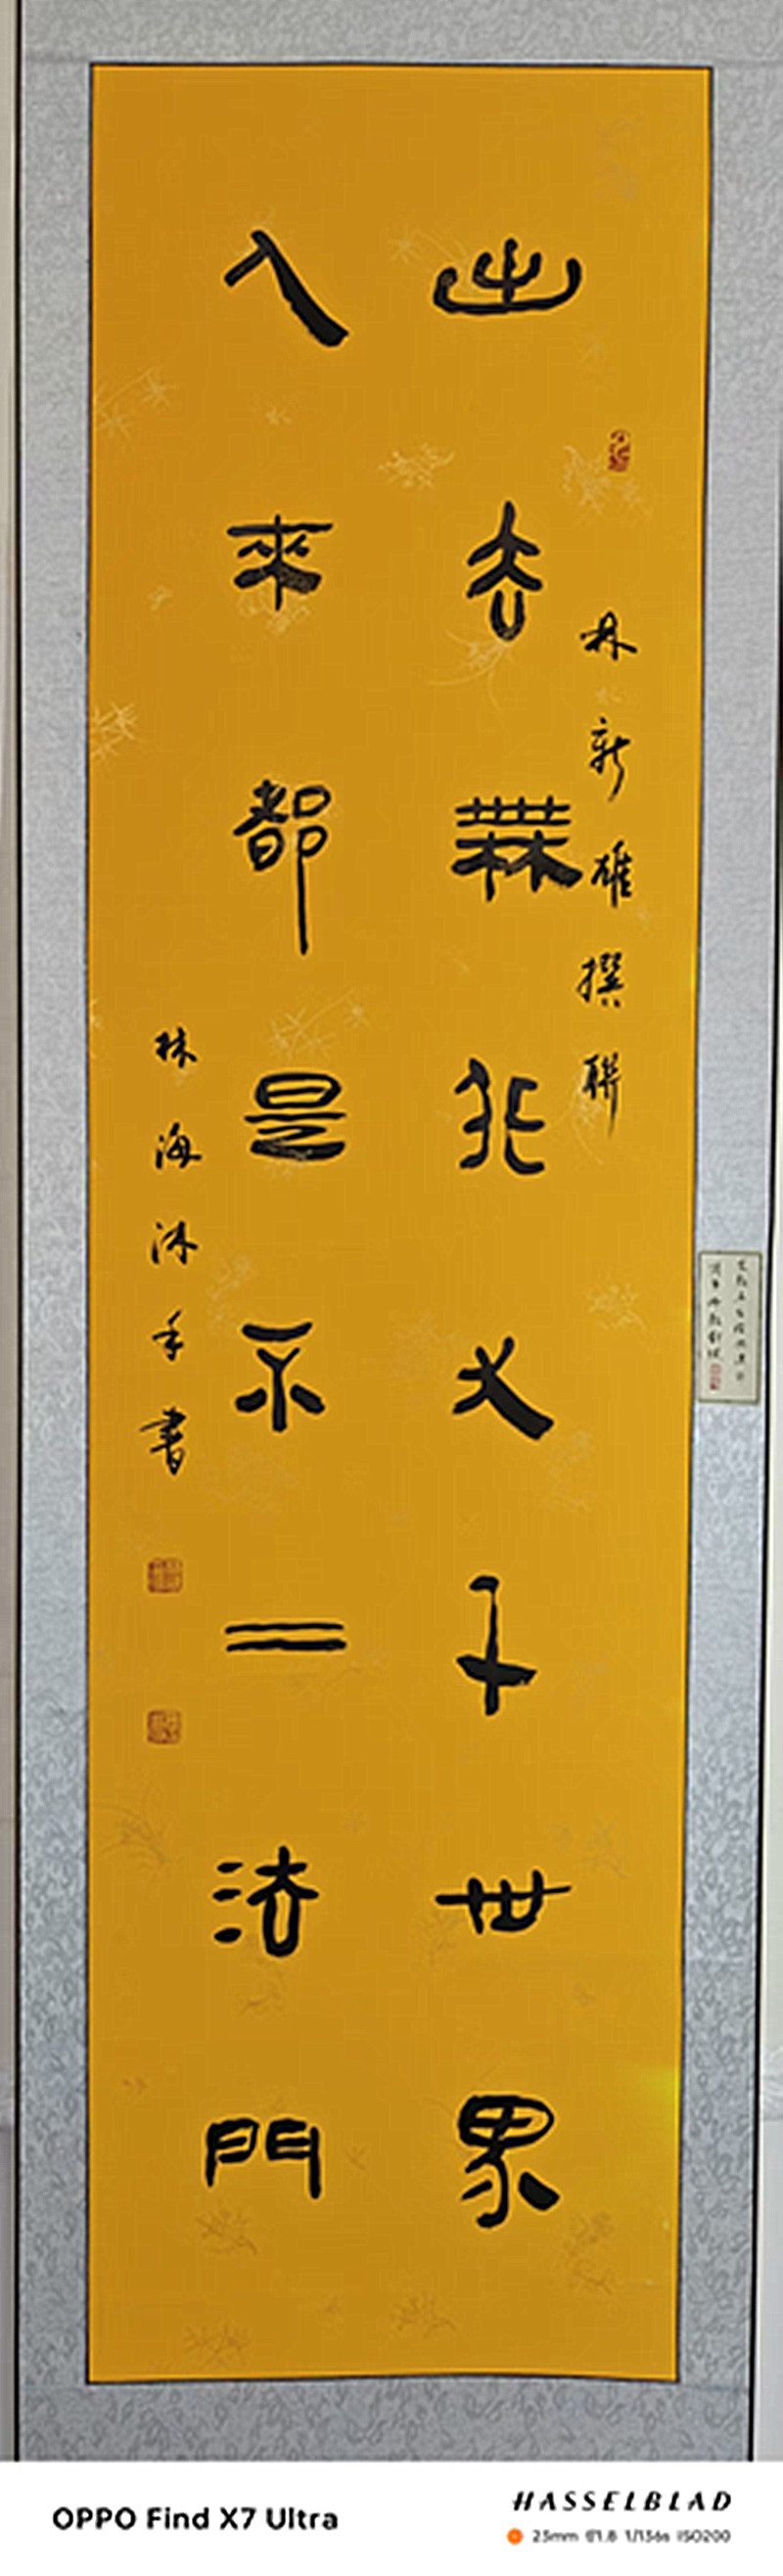 出去無非大千世界
林新雄撰聯
入來都是不二法門
林海沐手書
OPPO Find X7 Ultra
HASSELBLAD
23mm f/1.8 1/136s ISO200